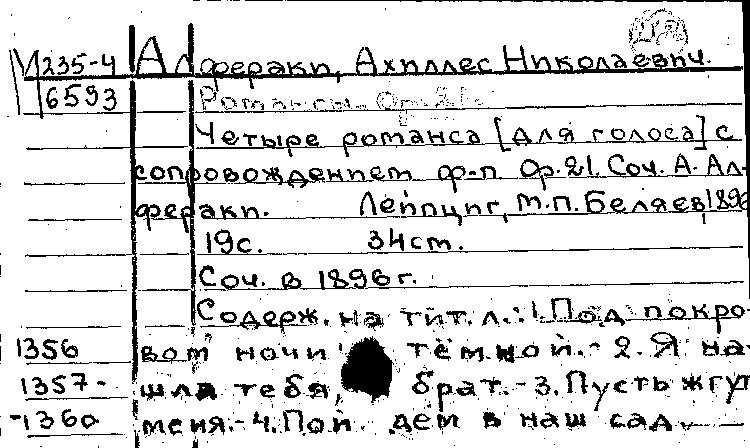 М235-4 Алфераки, Ахиллес Николаевич.
6593 Романсы. Ор. 21.
Четыре романса [для голоса] с
сопровождением ф-п. Ор.21. Соч. А. Ал-
фераки. Лейпциг, М.П. Беляев, 1896
19с. 34см.
Соч. в 1896 г.
Содерж. на тит. л.: 1. Под покро-
1356 вом ночи тёмной.- 2. Я на-
1357- шла тебя, брат.- 3. Пусть жгут
-1360 меня.- 4. Пойдем в наш сад.